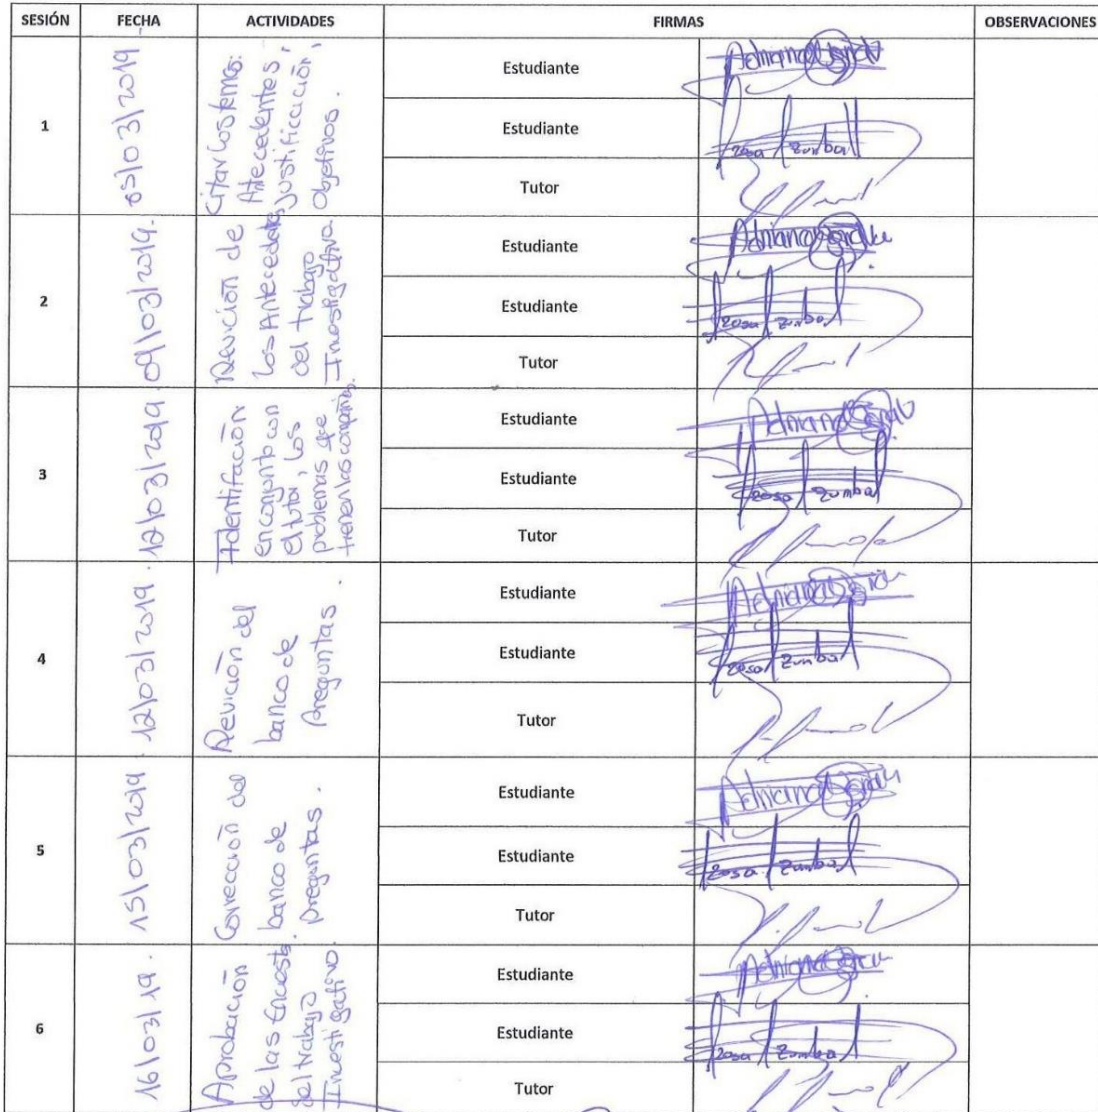 SESIÓN FECHA ACTIVIDADES FIRMAS OBSERVACIONES
1
05/03/2019
Citar los temas:
Antecedentes,
justificación,
Objetivos.
Estudiante
Estudiante
Rosa Zumba
Tutor
2
09/03/2019.
Revición de
los Antecedentes
del trabajo
Investigativo
Estudiante
Adriana
Estudiante
Rosa Zumba
Tutor
3
12/03/2019.
Identificación
en conjunto con
el tutor, los
problemas que
tienen las compañías.
Estudiante
Adriana
Estudiante
Rosa Zumba
Tutor
4
12/03/2019.
Revición del
banco de
Preguntas.
Estudiante
Adriana
Estudiante
Rosa Zumba
Tutor
5
15/03/2019
Corrección del
banco de
preguntas.
Estudiante
Adriana
Estudiante
Rosa Zumba
Tutor
6
16/03/19.
Aprobación
de las Encuestas.
del trabajo
Investigativo.
Estudiante
Adriana
Estudiante
Rosa Zumba
Tutor